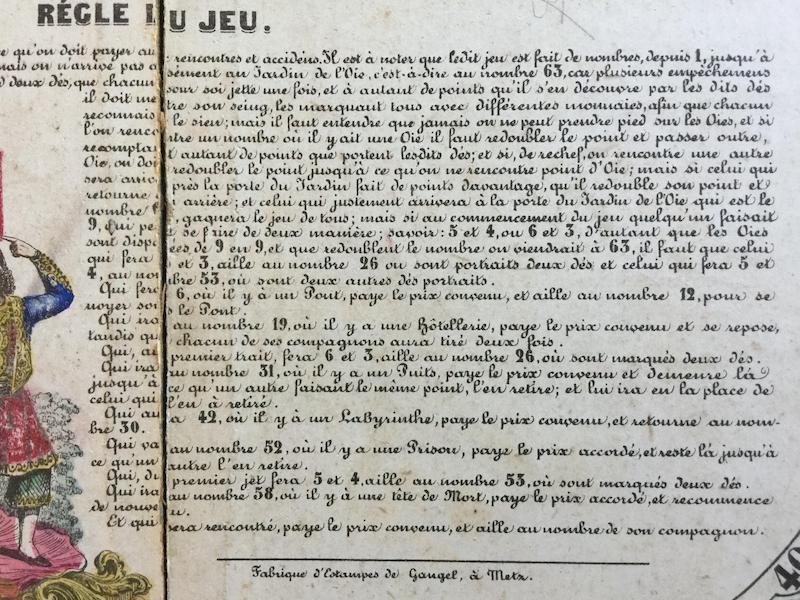 RÉGLE DU JEU.
ce qu'on doit payer au rencontres et accidens. Il est à noter que ledit jeu est fait de nombres, depuis 1, jusqu'à
mais on n'arrivé pas a sément au Jardin de l'Oie, c'est-à-dire au nombre 63, car plusieurs empêchemens
deux dés, que chacun pour soi jette une fois, et à autant de points qu'il s'en découvre par les dits dés
il doit me tre son seing, les marquant tous avec différentes monnaies, afin que chacun
reconnais le sien; mais il faut entendre que jamais on ne peut prendre pied sur les Oies, et si
l'on renco ntre un nombre où il y ait une Oie il faut redoubler le point et passer outre,
recompta t autant de points que portent lesdits dés; et si, de rechef, on rencontre une autre
Oie, on doi redoubler le point jusqu'à ce qu'on ne rencontre point d'Oie; mais si celui qui
sera arriv près la porte du Jardin fait de points davantage, qu'il redouble son point et
retourne i arrière; et celui qui justement arrivera à la porte du Jardin de l'Oie qui est le
nombre 6 , gagnera le jeu de tous; mais si au commencement du jeu quelqu'un faisait
9, qui pe t se faire de deux manière; savoir: 5 et 4, ou 6 et 3, d'autant que les Oies
sont dispo ées de 9 en 9, et que redoublent le nombre on viendrait à 63, il faut que celui
qui fera et 3, aille au nombre 26 ou sont portraits deux dés et celui qui fera 5 et
4, au nom bre 53, où sont deux autres dés portraits.
Qui fera 6, où il y à un Pont, paye le prix convenu, et aille au nombre 12, pour se
noyer sou s le Pont.
Qui ira au nombre 19, où il y a une Hôtellerie, paye le prix convenu et se repose,
tandis qu chacun de ses compagnons aura tiré deux fois.
Qui, au premier trait, fera 6 et 3, aille au nombre 26, où sont marqués deux dés.
Qui ira au nombre 31, où il y a un Puits, paye le prix convenu et demeure là
jusqu'à ce qu'un autre faisant le même point, l'en retire; et lui ira en la place de
celui qui l'en à retiré.
Qui au a 42, où il y à un Labyrinthe, paye le prix convenu, et retourne au nom-
bre 30.
Qui va au nombre 52, où il y a une Prison, paye le prix accordé, et reste là jusqu'à
ce qu'un autre l'en retire.
Qui, du premier jet fera 5 et 4, aille au nombre 53, où sont marqués deux dés.
Qui ira au nombre 58, où il y à une tête de Mort, paye le prix accordé, et recommence
de nouve u.
Et qui sera rencontré, paye le prix convenu, et aille au nombre de son compagnon.
Fabrique d'Estampes de Gangel, à Metz.
40